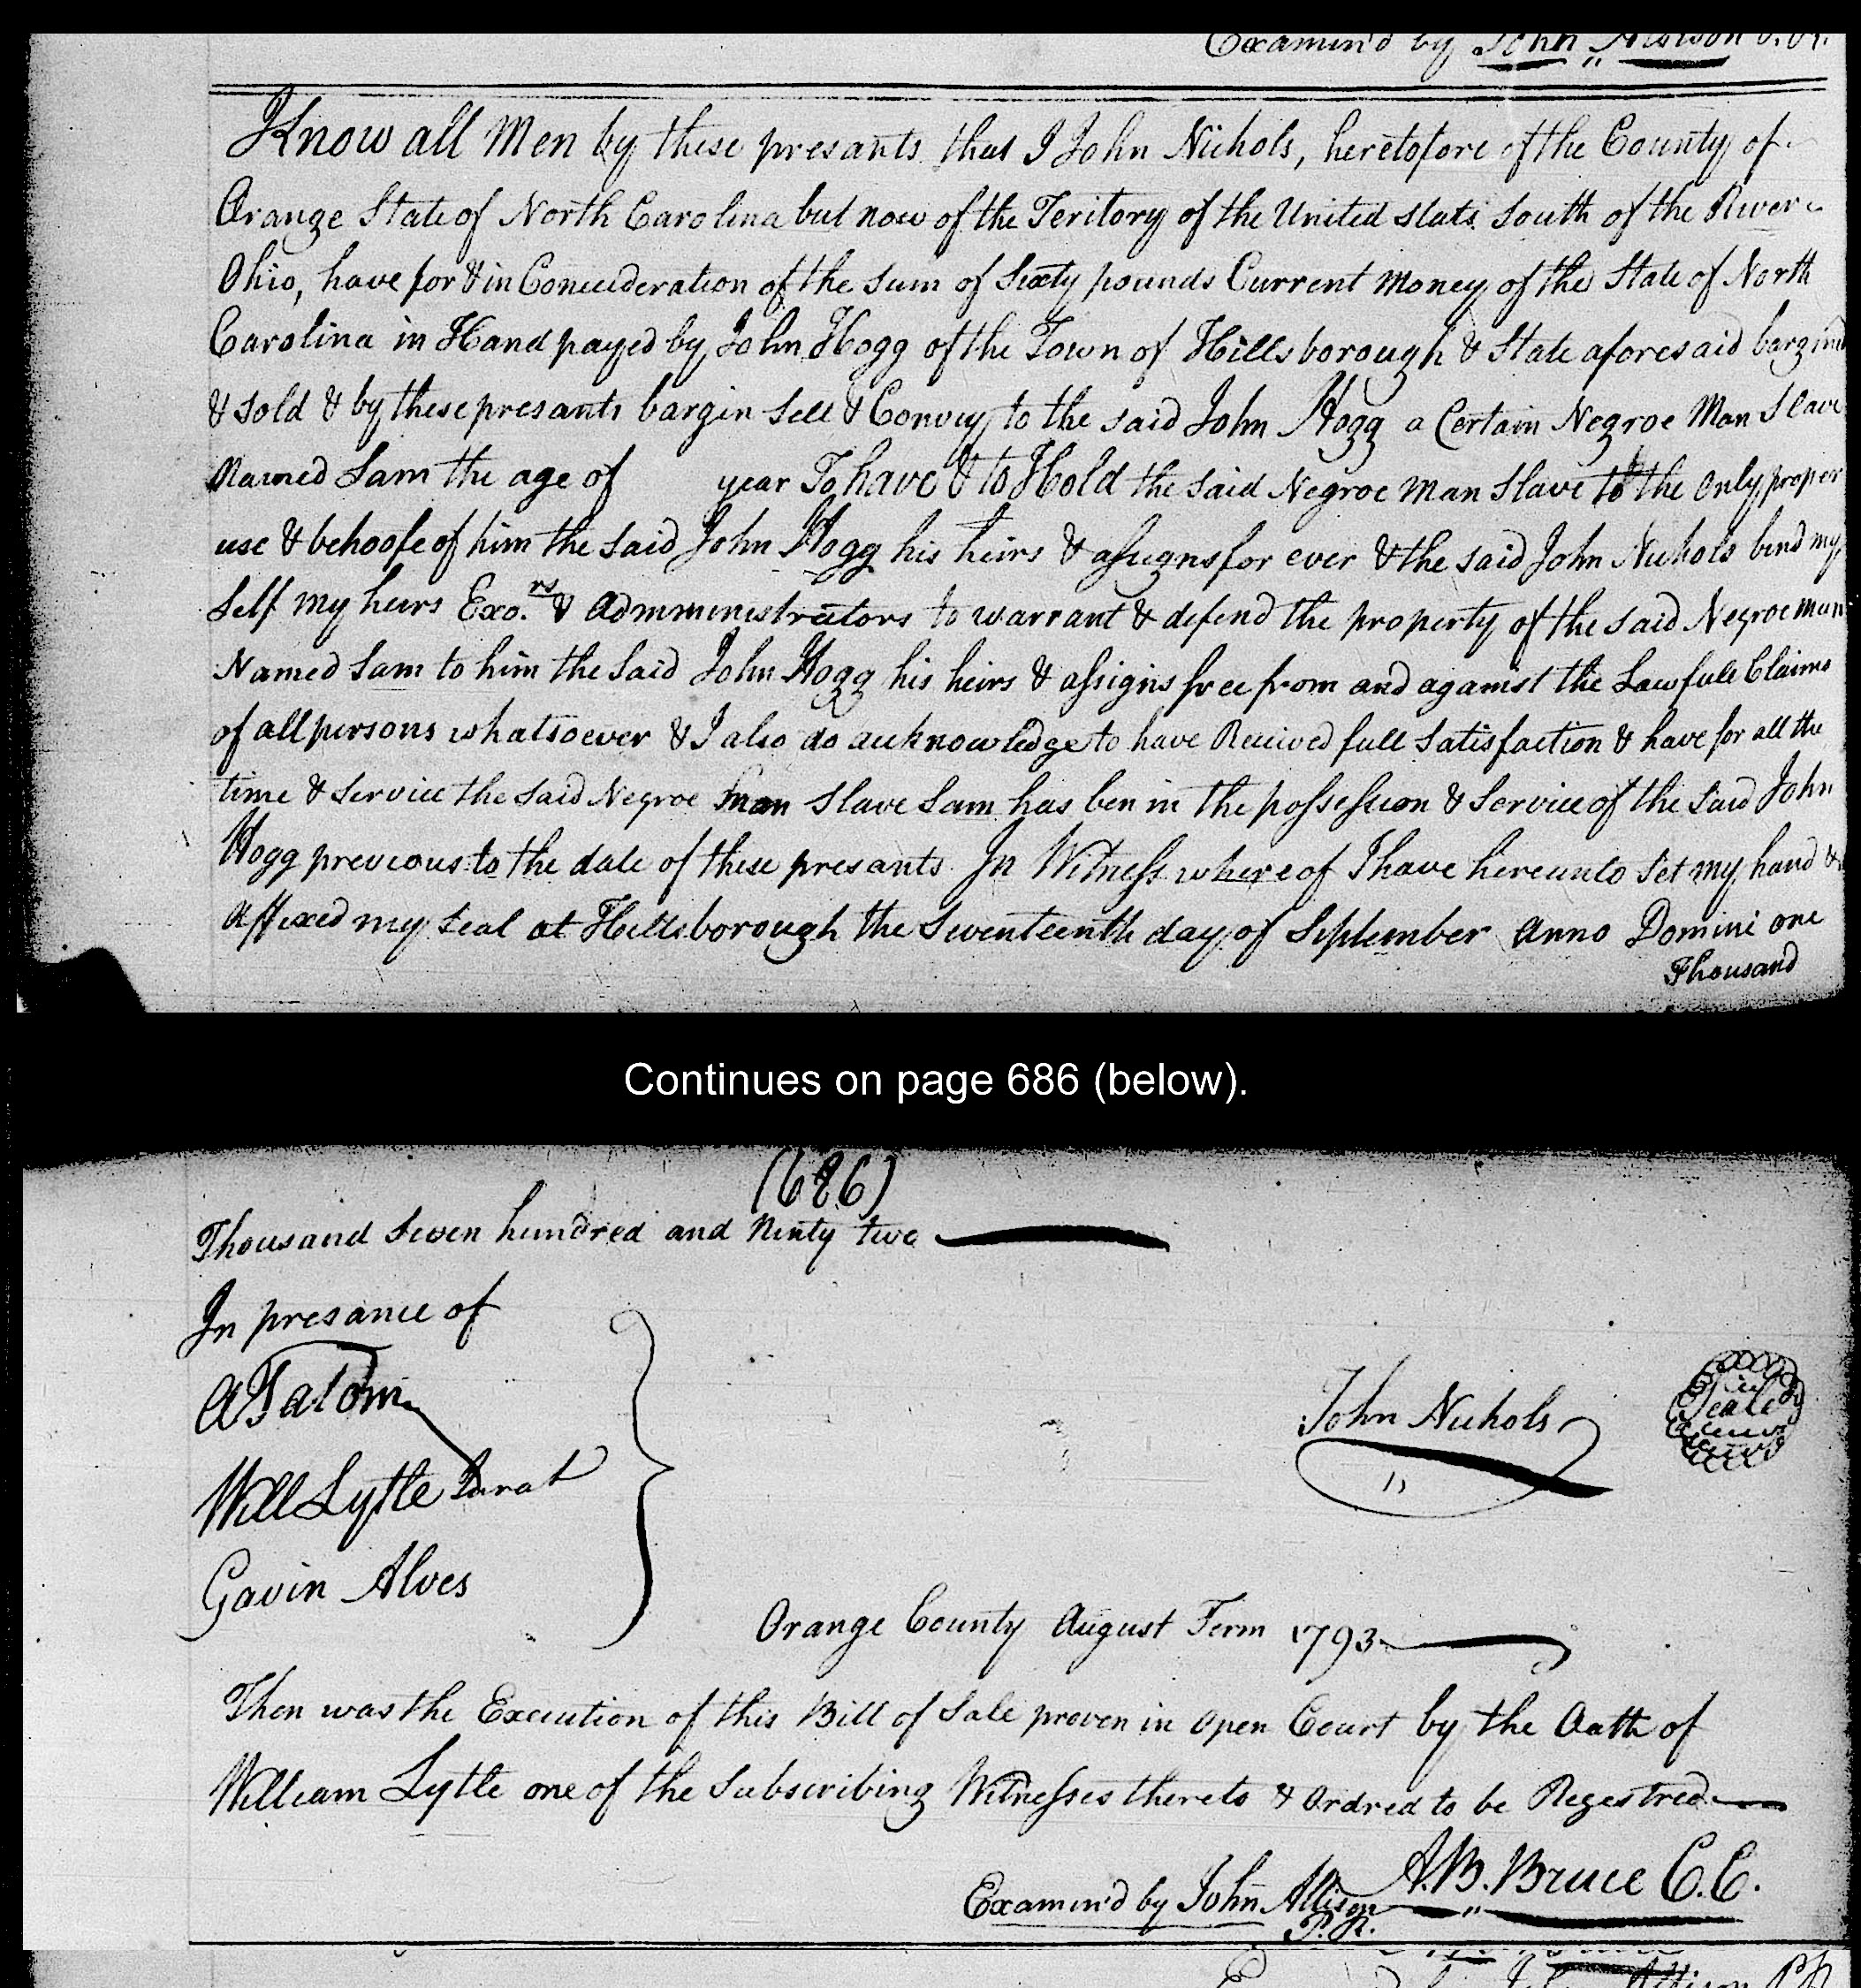 Examin'd by John Allison P.R.
Know all Men by these presants that I John Nichols, heretofore of the County of
Orange State of North Carolina but now of the Teritory of the United stats South of the River
Ohio, have for & in Concideration of the sum of Sixty pounds Current Money of the State of North
Carolina in Hand payed by John Hogg of the Town of Hillsborough & State aforesaid bargined
& sold & by these presants bargin sell & Convey to the said John Hogg a Certain Negroe Man Slave
Named Sam the age of year To have & to Hold the said Negroe man Slave to the only proper
use & behoofe of him the said John Hogg his heirs & assigns for ever & the said John Nichols bind my
self my heirs Exo.rs & Admministrators to warrant & defend the property of the said Negroe man
Named Sam to him the said John Hogg his heirs & assigns free from and against the Lawfull Claims
of all persons whatsoever & I also do acknowledge to have Received full Satisfaction & have for all the
time & Service the said Negroe man Slave Sam has ben in the possession & Service of the said John
Hogg previous to the date of these presants In Witness whereof I have hereunto set my hand &
Affixed my seal at Hillsborough the Seventeenth day of September Anno Domini one
Thousand
Continues on page 686 (below).
(686)
Thousand Seven hundred and Ninty two
In presance of
A Tatom
John Nichols Seal
Will Lytle Jurat
Gavin Alves
Orange County August Term 1793
Then was the Execution of this Bill of Sale proven in Open Court by the Oath of
William Lytle one of the Subscribing Witnesses thereto & Ordred to be Regestred
A.B. Bruce C.C.
Examin'd by John Allison
P.R.